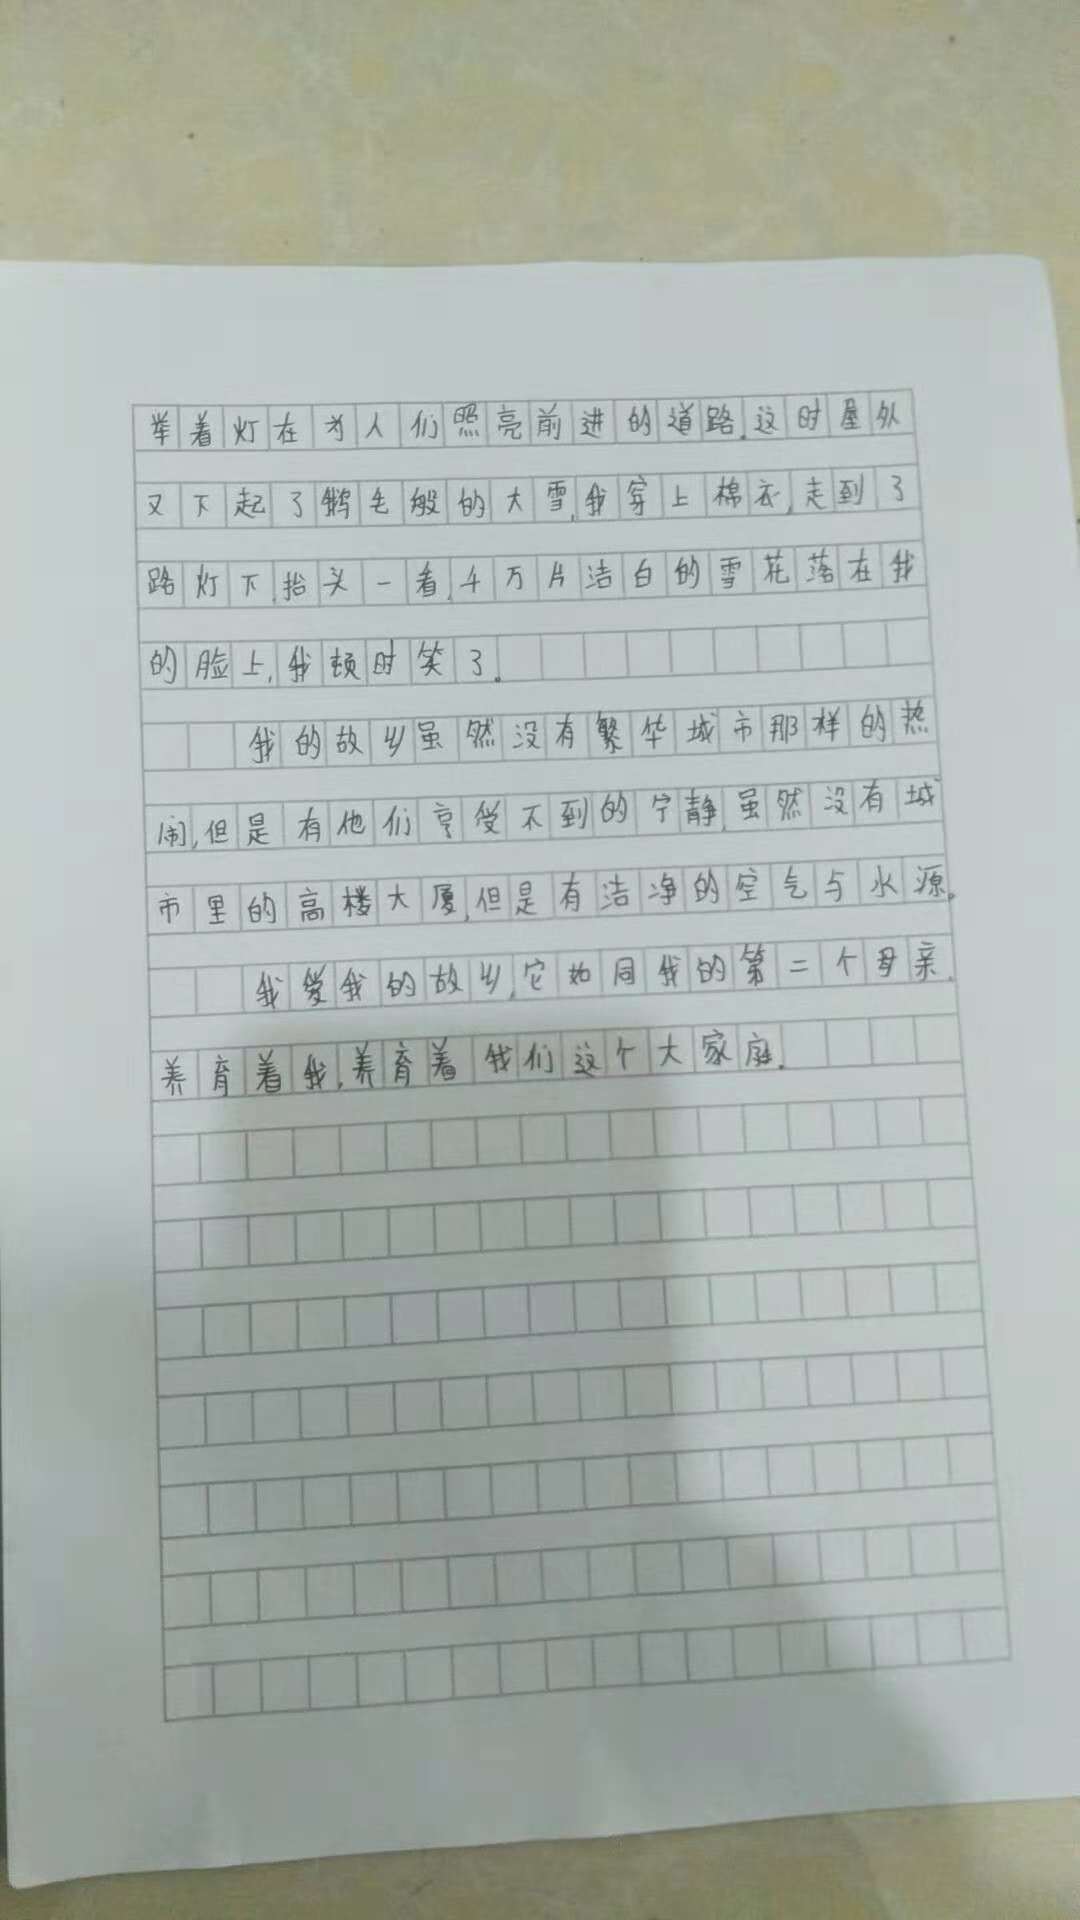 举着灯在为人们照亮前进的道路.这时屋外
又下起了鹅毛般的大雪,我穿上棉衣,走到了
路灯下,抬头一看,千万片洁白的雪花落在我
的脸上,我顿时笑了.
我的故乡虽然没有繁华城市那样的热
闹,但是有他们享受不到的宁静,虽然没有城
市里的高楼大厦,但是有洁净的空气与水源.
我爱我的故乡,它如同我的第二个母亲.
养育着我,养育着我们这个大家庭.